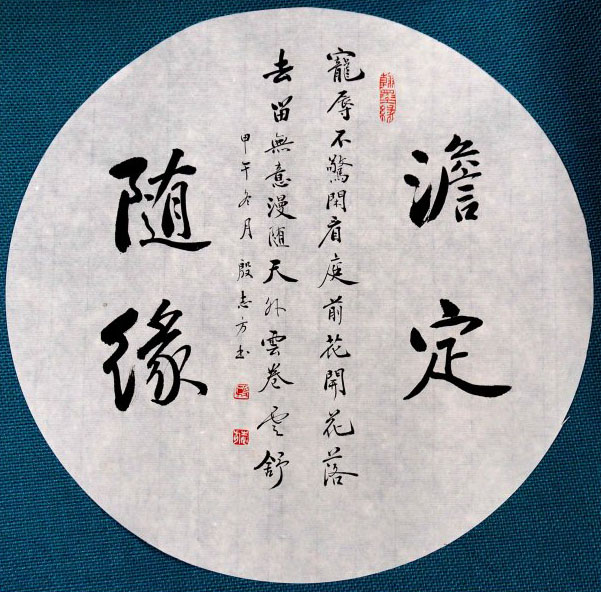 澹定
寵辱不驚閑看庭前花開花落
去留無意漫随天外雲卷雲舒
甲午冬月殷志方书
随缘